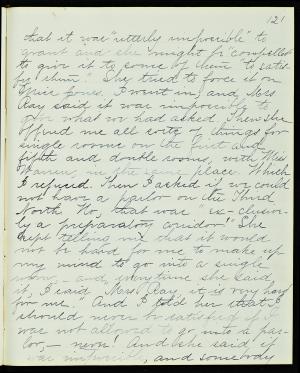 121
that it was "utterly impossible" to
grant and she might be "compelled
to give it to some of them to satis-
fy them." She tried to force it on
Jones. I went in, and Mrs
Ray said it was impossible to
give what we had asked. Then she
offered me all sorts of things for
single rooms on the first and
fifth and double rooms, with Miss
in the same place. Which
I refused. Then I asked if we could
not have a parlor on the Third
North. No, that was "ex-clusive-
ly a preparatory corridor." She
kept telling me that it would
not be hard for me to make up
my mind to go into a single
everytime she said
it, I said "Mrs Ray it is very hard
for me." And I told her that I
should never be satisfied if I
was not allowed to go into a par-
lor, – never! And she said, if
was impossible, and somebody